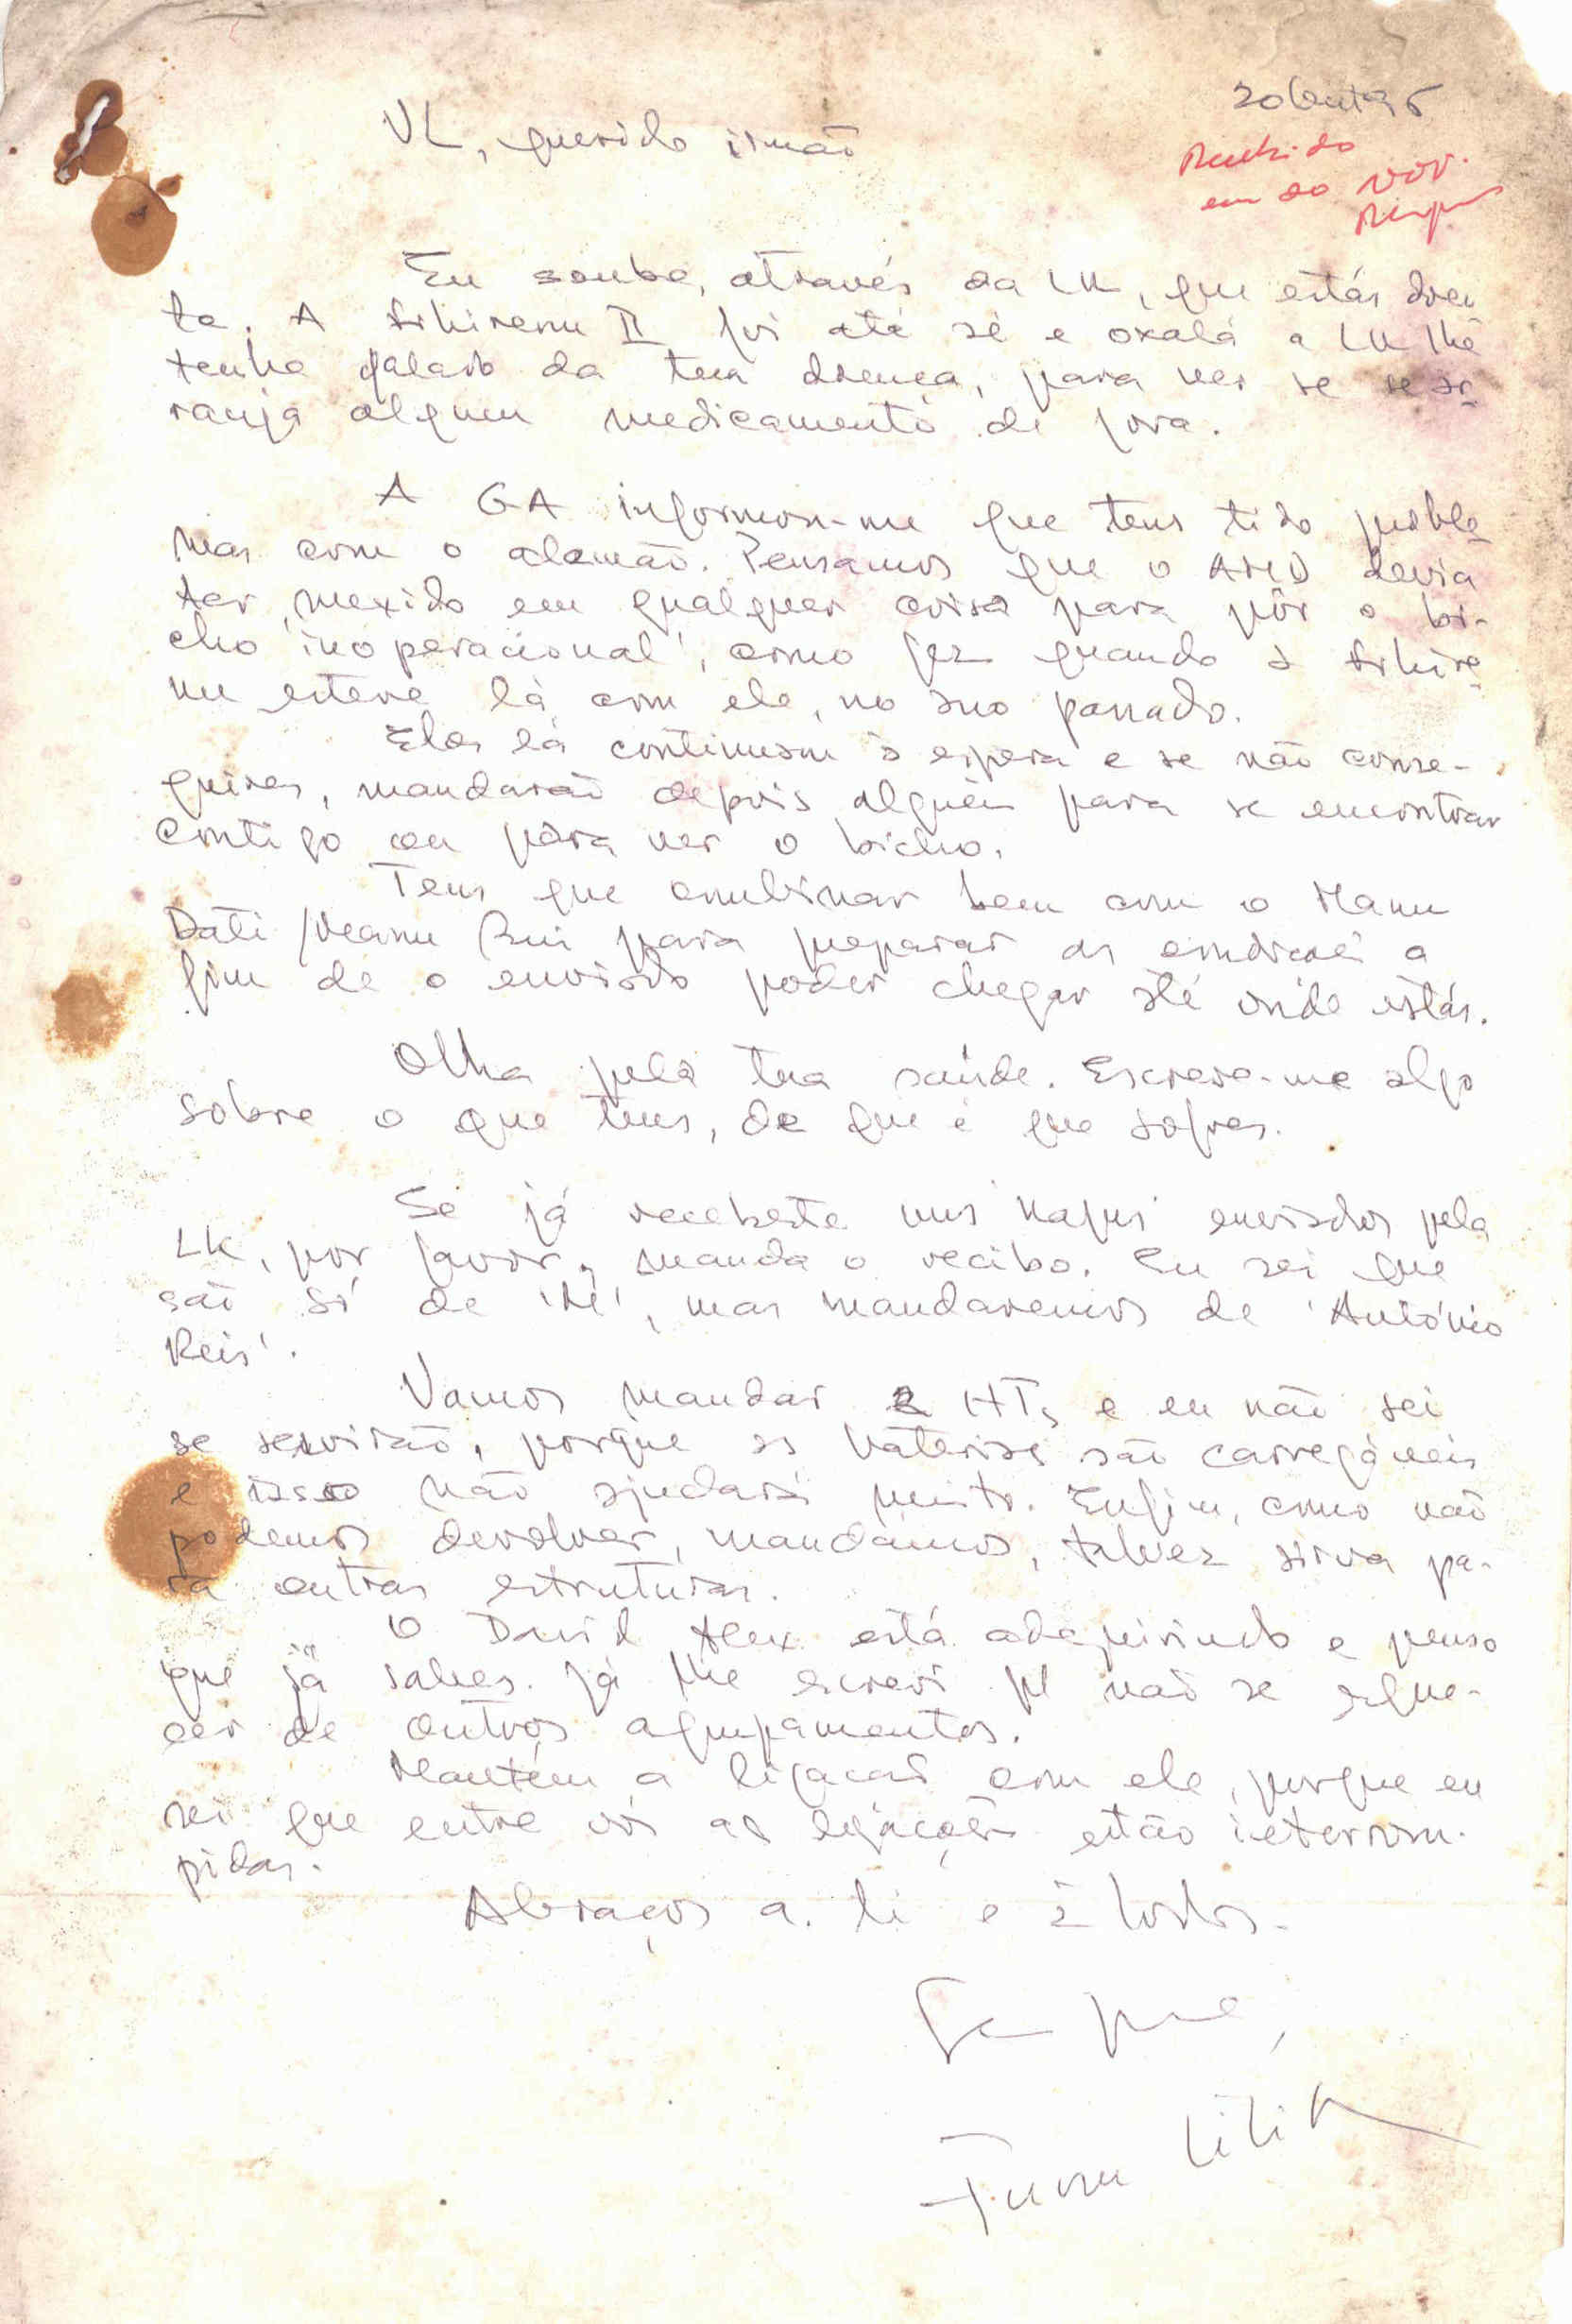 20 Out 95
Recebido
em 20 Nov.
VL, querido irmão
Eu soube, através da LK, que estás doen
te. A Bihirenu II foi até sé e oxalá a LK lhe
tenha falado da tua doença, para ver se se ar
ranja algum medicamento de fora.
A GA informou-me que tens tido proble
mas com o alemão. Pensamos que o devia
ter mexido em qualquer coisa para pôr o bi-
cho 'inoperacional', como fez quando a Bihire
nu esteve lá com ele, no ano passado.
Eles lá continuam à espera e se não conse-
guires, mandarão depois alguém para se encontrar
contigo ou para ver o bicho.
Tens que combinar bem com o Manu
Dati /Meanu Rui para preparar as condições a
fim de o enviado poder chegar até onde estás.
Olha pela tua saúde. Escreve-me algo
sobre o que tens, de que é que sofres.
Se já recebeste uns enviados pela
LK, por favor, manda o recibo. Eu sei que
são só de 'Mé', mas mandaremos de 'António
Reis'.
Vamos mandar 2 HTs e eu não sei
se servirão, porque as baterias são carregáveis
e isso não ajudará muito. Enfim, como não
podemos devolver, mandámos, talvez sirva pa-
ra outras estruturas.
O David Alex está adquirindo e penso
que já sabes. Já lhe escrevi p/ não se esque-
cer de outros agrupamentos.
Mantém a ligação com ele, porque eu
sei que entre vós as ligações estão interrom-
pidas.
Abraços a ti e a todos.
Sempre,